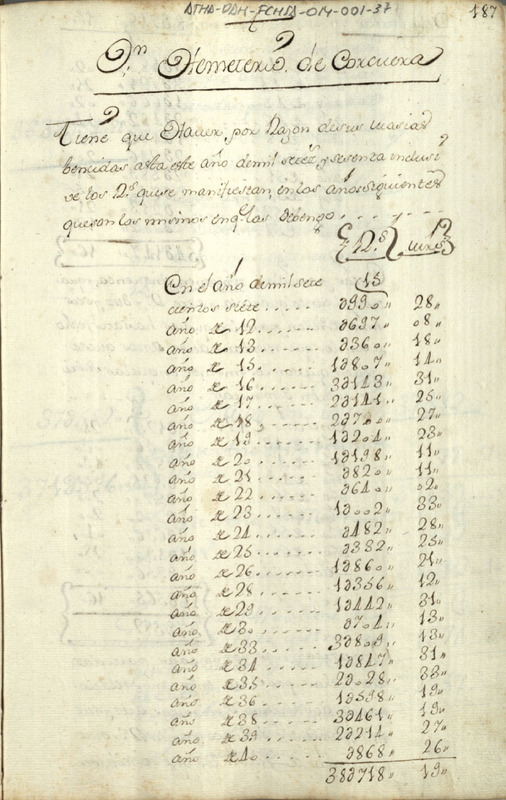 ATHA-DAH-FCHTA-014-001-37
187
Dn Hemeterio de Corcuera
Tiene que Hauer, por Razon de sus
bencidas asta este año de mil setez.s y sesenta inclusi
ve los R.s que se manifiestan, en los años siguientes
que son los mismos en q.e las debengo
R.s mrs
En el año de mil sete 15
cientos siete 399० 28
año de 12 0697 08
año de 13 036० 18
año de 15 1980७ 14
año de 16 39143 31
año de 17 29141 25
año de 18 2970० 27
año de 19 1920४ 23
año de 20 19198 11
año de 21 982० 11
año de 22 964० 02
año de 23 19002 33
año de 24 9482 28
año de 25 9332 25
año de 26 19860 21
año de 28 19356 12
año de 29 19442 31
año de 30 9704 13
año de 33 39809 13
año de 34 19847 31
año de 35 29028 33
año de 36 19598 19
año de 38 39461 19
año de 39 29214 27
año de 40 9868 26
389718 19